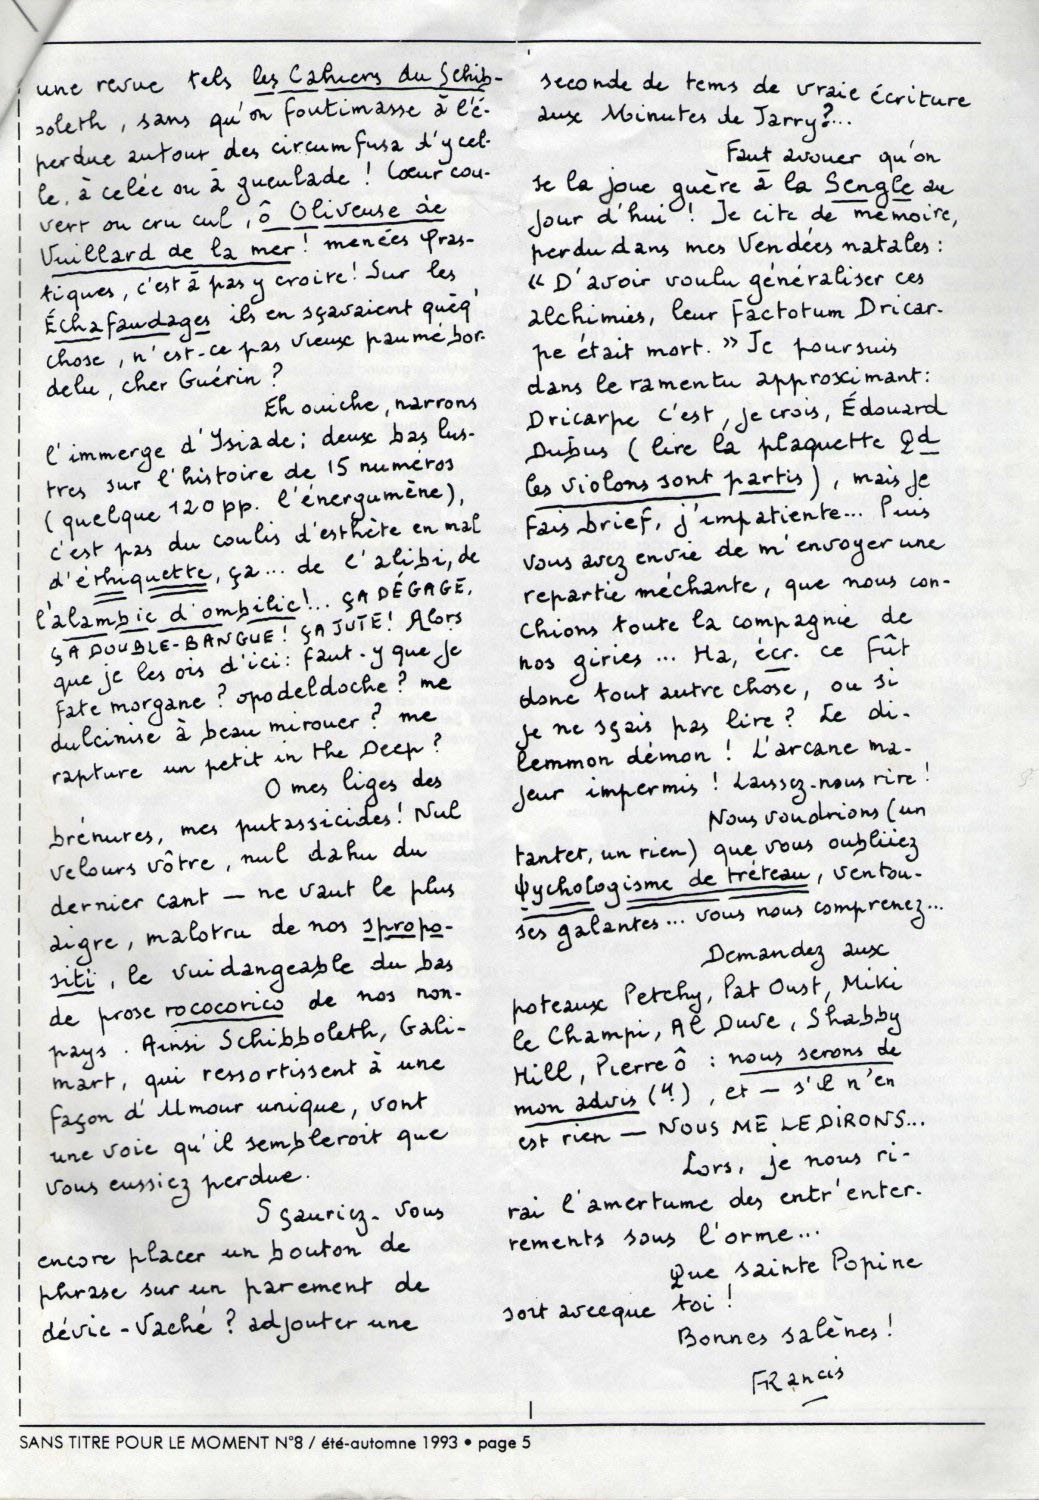 une revue tels les Cahiers du Schib-
boleth, sans qu'on foutimasse à l'é-
perdue autour des circumfusa d'ycel-
le, à celée ou à gueulade ! Cœur cou-
vert ou cru cul, ô Oliveuse de
Vuillard de la mer ! menées fras-
tiques, c'est à pas y croire ! Sur les
Échafaudages ils en sçavaient quéq'
chose, n'est-ce pas vieux paumé bor-
delu, cher Guérin ?
Eh ouiche, narrons
l'immerge d'Ysiade ; deux bas lus-
tres sur l'histoire de 15 numéros
(quelque 120 pp. l'énergumène),
c'est pas du coulis d'esthète en mal
d'éthiquette, ça... de l'alibi, de
l'alambic d'ombilic !.. ÇA DÉGAGE,
ÇA DOUBLE-BANGUE ! ÇA JUTE ! Alors
que je les ois d'ici : faut-y que je
fate morgane ? opodeldoche ? me
dulcinise à beau mirouer ? me
rapture un petit in the Deep ?
O mes liges des
brénures, mes putassicides ! Nul
velours vôtre, nul dahu du
dernier cant — ne vaut le plus
aigre, malotru de nos spropo-
siti, le vuidangeable du bas
de prose rococorico de nos non-
pays. Ainsi Schibboleth, Gali-
mart, qui ressortissent à une
façon d'Umour unique, vont
une voie qu'il sembleroit que
vous eussiez perdue.
Sçauriez-vous
encore placer un bouton de
phrase sur un parement de
dévic-Vaché ? adjouter une
seconde de tems de vraie écriture
aux Minutes de Jarry ?...
Faut avouer qu'on
se la joue guère à la Sengle au
jour d'hui ! Je cite de mémoire,
perdu dans mes Vendées natales :
« D'avoir voulu généraliser ces
alchimies, leur Factotum Dricar-
pe était mort. » Je poursuis
dans le ramentu approximant :
Dricarpe c'est, je crois, Édouard
Dubus (lire la plaquette Qd
les violons sont partis), mais je
fais brief, j'impatiente... Puis
vous avez envie de m'envoyer une
repartie méchante, que nous con-
chions toute la compagnie de
nos giries... Ha, écr. ce fût
donc tout autre chose, ou si
je ne sçais pas lire ? Le di-
lemmon démon ! L'arcane ma-
jeur impermis ! Laissez-nous rire !
Nous voudrions (un
tantet, un rien) que vous oubliiez
ψychologisme de tréteau, ventou-
ses galantes... vous nous comprenez...
Demandez aux
poteaux Petchy, Pat Oust, Miki
le Champi, Al Duve, Shabby
Hill, Pierre ô : nous serons de
mon advis (4), et — s'il n'en
est rien — NOUS ME LE DIRONS...
Lors, je nous ri-
rai l'amertume des entr'enter-
rements sous l'orme...
Que sainte Popine
soit avecque toi !
Bonnes salènes !
FRancis
SANS TITRE POUR LE MOMENT N°8 / été-automne 1993 • page 5